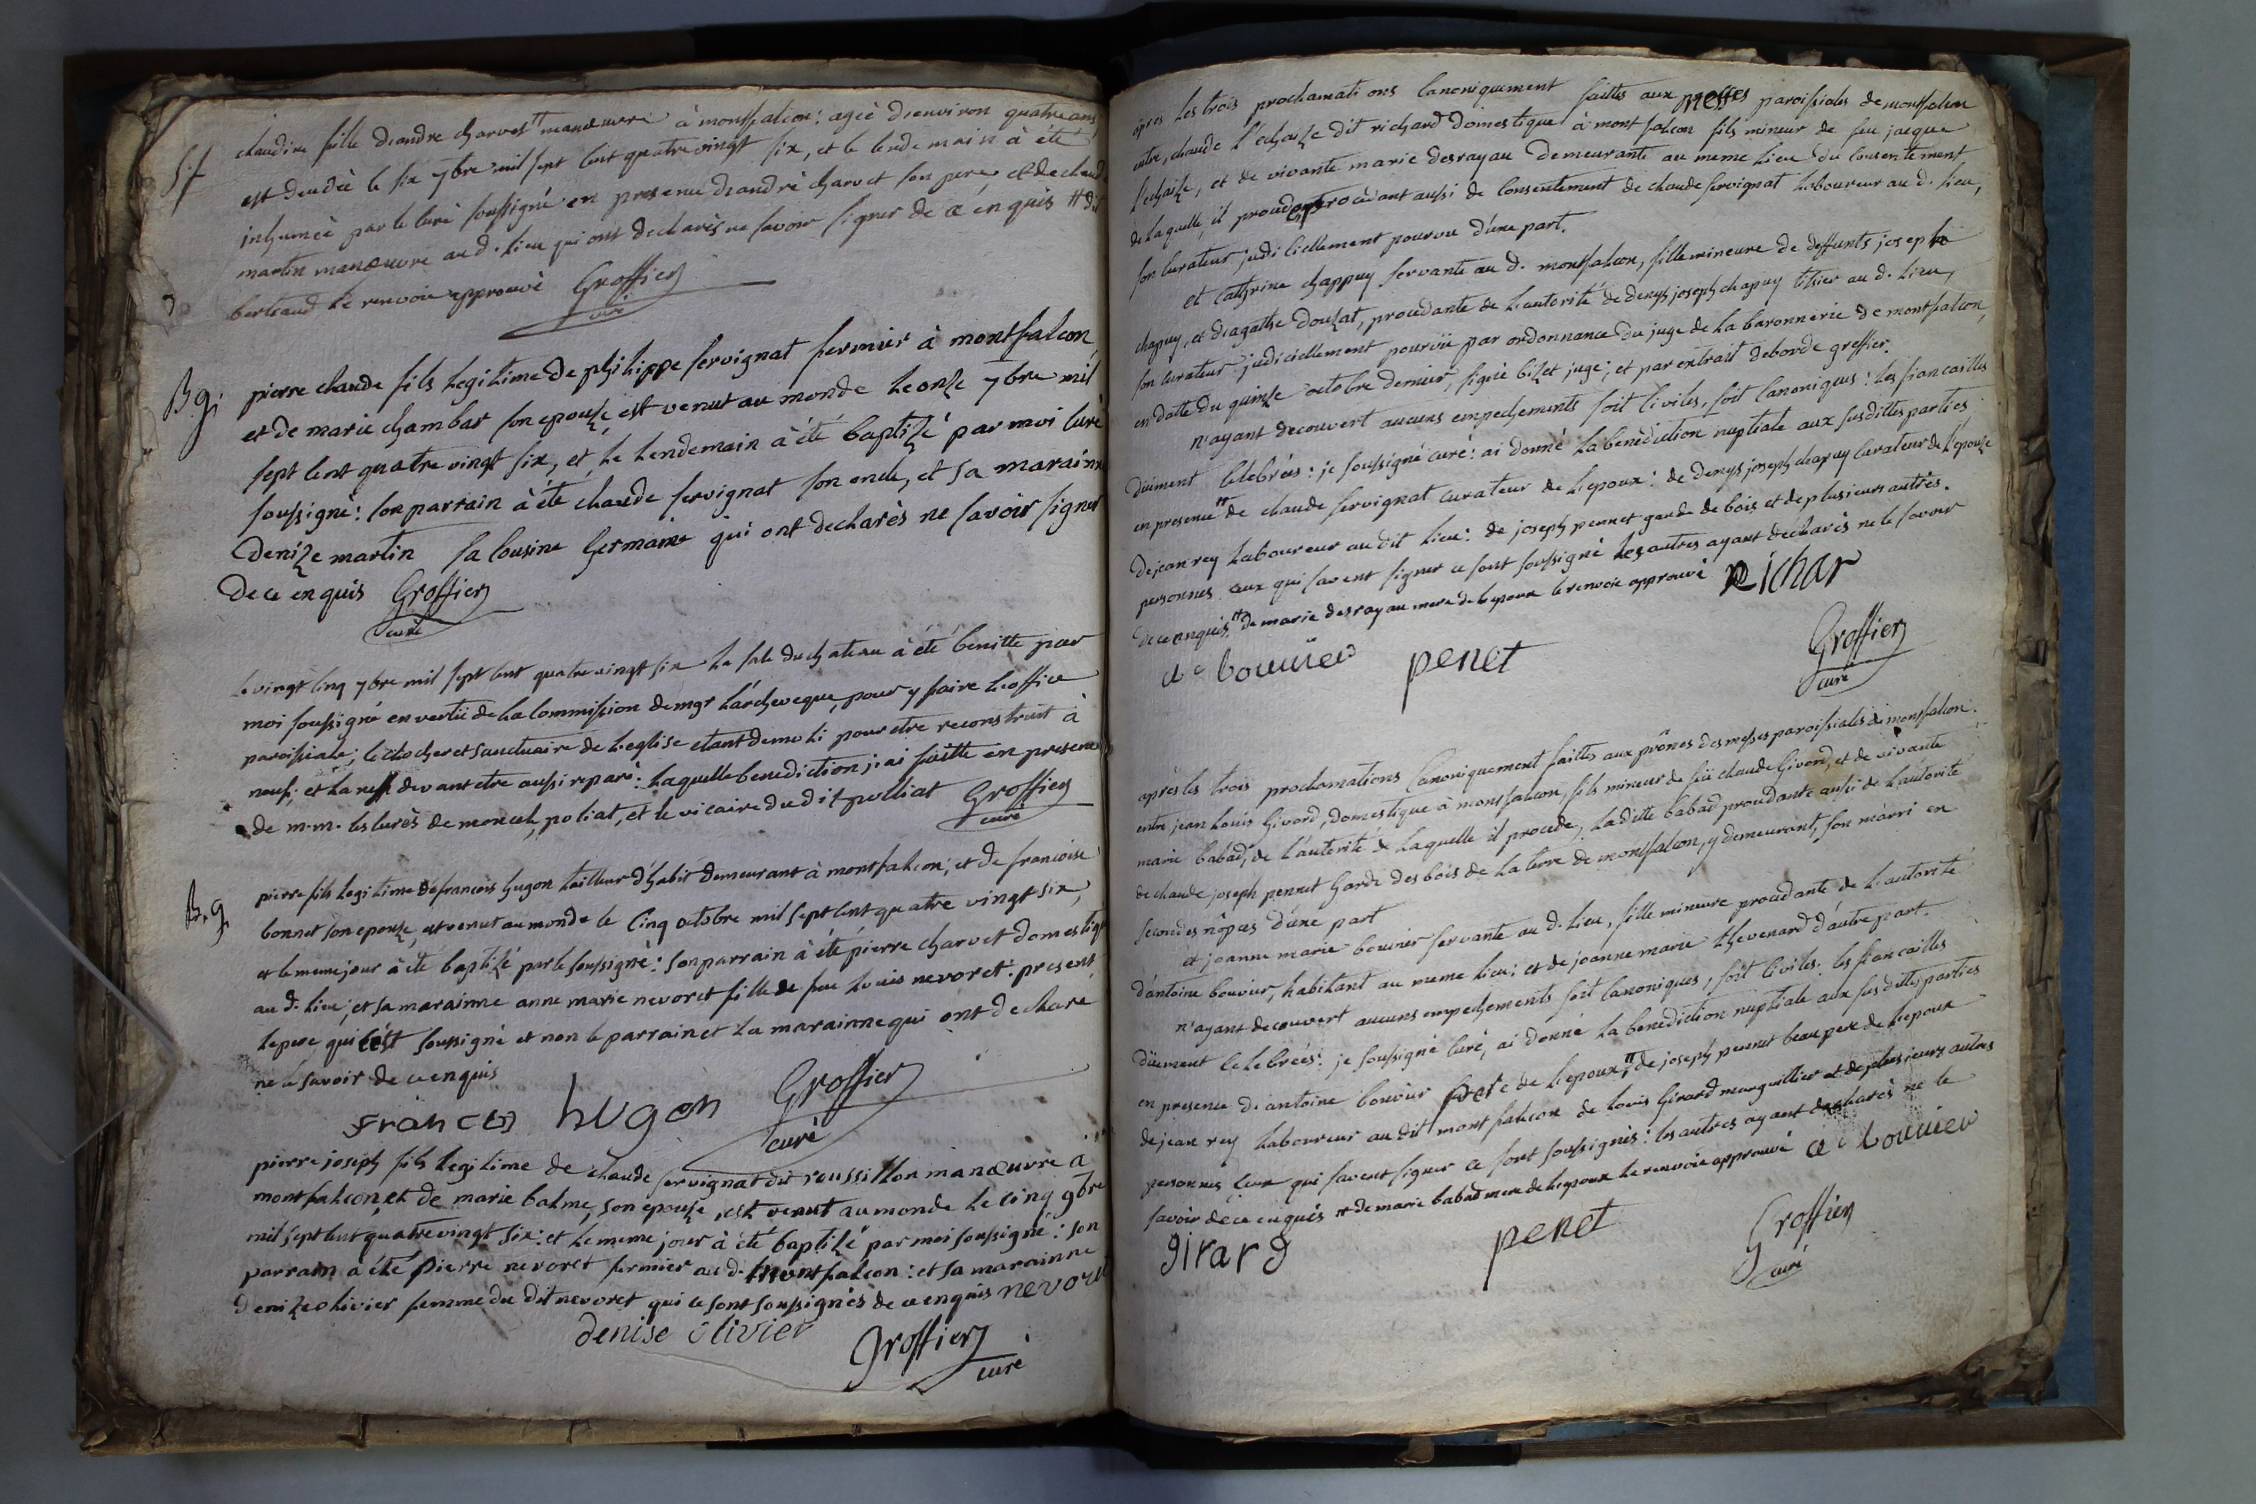 S.f
claudine fille d'andre charvet # manœuvre à montfalcon: agée d'environ quatre ans
est deudée le six 7bre mil sept cent quatre vingt six, et le lendemain à été
inhumée par le curé soussigné en presence d'andré charvet son pere, et de claude
martin manœuvre au d. lieu qui ont declarés ne savoir signer de ce enquis # dit
berteaud le renvoie approuvé Groffier
curé
B.g.
pierre claude fils legitime de philippe servignat fermier à montfalcon,
et de marie chambar son epouse, est venut au monde le onze 7bre mil
sept cent quatre vingt six, et le lendemain à été baptizé par moi curé
soussigné: son parrain à été claude servignat son oncle, et sa marainne
denize martin sa cousine germaine qui ont declarés ne savoir signer
de ce enquis Groffier
curé
le vingt cinq 7bre mil sept cent quatre vingt six la sale du chateau à été benitte par
moi soussigné en vertü de la commission de mgr l'archeveque, pour y faire l'office
paroissiale; le clocher et sanctuaire de l'eglise etant demoli pour etre reconstruit à
neuf; et la neff devant etre aussi reparé: laquelle benediction j'ai faitte en presence
de m.m. les curés de moncel, poliat, et le vicaire du dit polliat Groffier
curé
B.g.
pierre fils legitime de francois hugon tailleur d'habit demeurant à montfalcon; et de francoise
bonnet son epouse, est venut au monde le cinq octobre mil sept cent quatre vingt six,
et le meme jour à été baptizé par le soussigné: son parrain à été pierre charvet domestique
au d. lieu, et sa marainne anne marie nevoret fille de feu louis nevoret: present
le pere qui c'est soussigné et non le parrain et la marainne qui ont declaré
ne le savoir de ce enquis
francois hugon Groffier
curé
pierre joseph fils legitime de claude servignat dit roussillon manœuvre à
montfalcon, et de marie balme, son epouse, est venut au monde le cinq 9bre
mil sept cent quatre vingt six: et le meme jour à été baptizé par moi soussigné: son
parrain à été pierre nevoret fermier au d. montfalcon: et sa marainne
denize olivier femme du dit nevoret qui ce sont soussignés de ce enquis nevoret
denise olivier Groffier
curé
après les trois proclamations canoniquement faittes aux messes paroissiales de montfalcon
entre, claude l'echaize dit richard domestique à montfalcon fils mineur de feu jacque
l'echaize, et de vivante marie desrayau demeurante au meme lieu du consentement
de laquelle, il procedant aussi de consentement de claude servignat laboureur au d. lieu,
son curateur judiciellement pourvu d'une part.
et cathrine chappuy servante au d. montfalcon, fille mineure de deffunts joseph
chapuy, et d'agathe douzat, procedante de l'autorité de denys joseph chapuy titsier au d. lieu,
son curateur judiciellement pourvüe par ordonnance du juge de la baronnerie de montfalcon,
en datte du quinze octobre dernier, signé bizet juge; et par extrait deborde greffier.
n'ayant decouvert aucuns empechements soit civiles, soit canoniques: les fiancailles
düement celebrées: je soussigné curé: ai donné la benediction nuptiale aux susdittes parties
en presence # de claude servignat curateur de l'epoux: de denys joseph chapuy curateur de l'epouze
de jean rey laboureur au dit lieu: de joseph pennet garde de bois et de plusieurs autres.
personnes ceux qui savent signer ce sont soussigné les autres ayant declarés ne le savoir
de ce enquis # de marie desrayau mere de l'epoux le renvoie approuvé Richar
a c bouuier penet Groffier
curé
après les trois proclamations canoniquement faittes aux prônes des messes paroissiales de montfalcon.
entre jean louis Givord, domestique à montfalcon, fils mineur de feü claude Givord, et de vivante
marie babad, de l'autorité de laquelle il procede, la ditte babad procedante aussi de l'autorité
de claude joseph pennet garde des bois de la terre de montfalcon, y demeurant, son marri en
secondes nôpces d'une part
et joanne marie bouvier servante au d. lieu, fille mineure procedante de l'autorité
d'antoine bouvier, habitant au meme lieu; et de joanne marie thevenard d'autre part.
n'ayant decouvert aucuns empechements soit canoniques, soit civiles: les fiancailles
düement celebréés: je soussigné curé, ai donné la benediction nuptiale aux susdittes parties
en presence d'antoine bouvier pere de l'epoux; # de joseph pennet beau pere de l'epoux
de jean rey laboureur au dit montfalcon de louis Girard marguillier et de plusieurs autres
personnes ceux qui savent signer ce sont soussignés: les autres ayant declarés ne le
savoir de ce enquis # de marie babad mere de l'epoux le renvoie approuvé a c bouuier
girard penet Groffier
curé